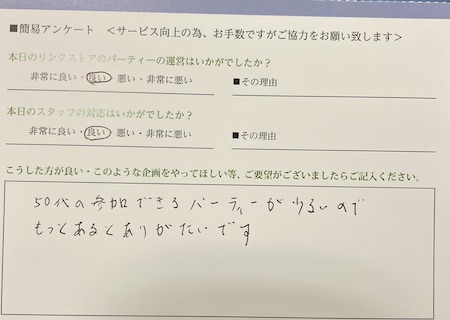 ■簡易アンケート <サービス向上の為、お手数ですがご協力をお願い致します>
本日のリンクストアのパーティーの運営はいかがでしたか？
非常に良い・良い・悪い・非常に悪い ■その理由
本日のスタッフの対応はいかがでしたか？
非常に良い・良い・悪い・非常に悪い ■その理由
こうした方が良い・このような企画をやってほしい等、ご要望がございましたらご記入ください。
50代の参加できるパーティーが少ないので
もっとあるとありがたいです